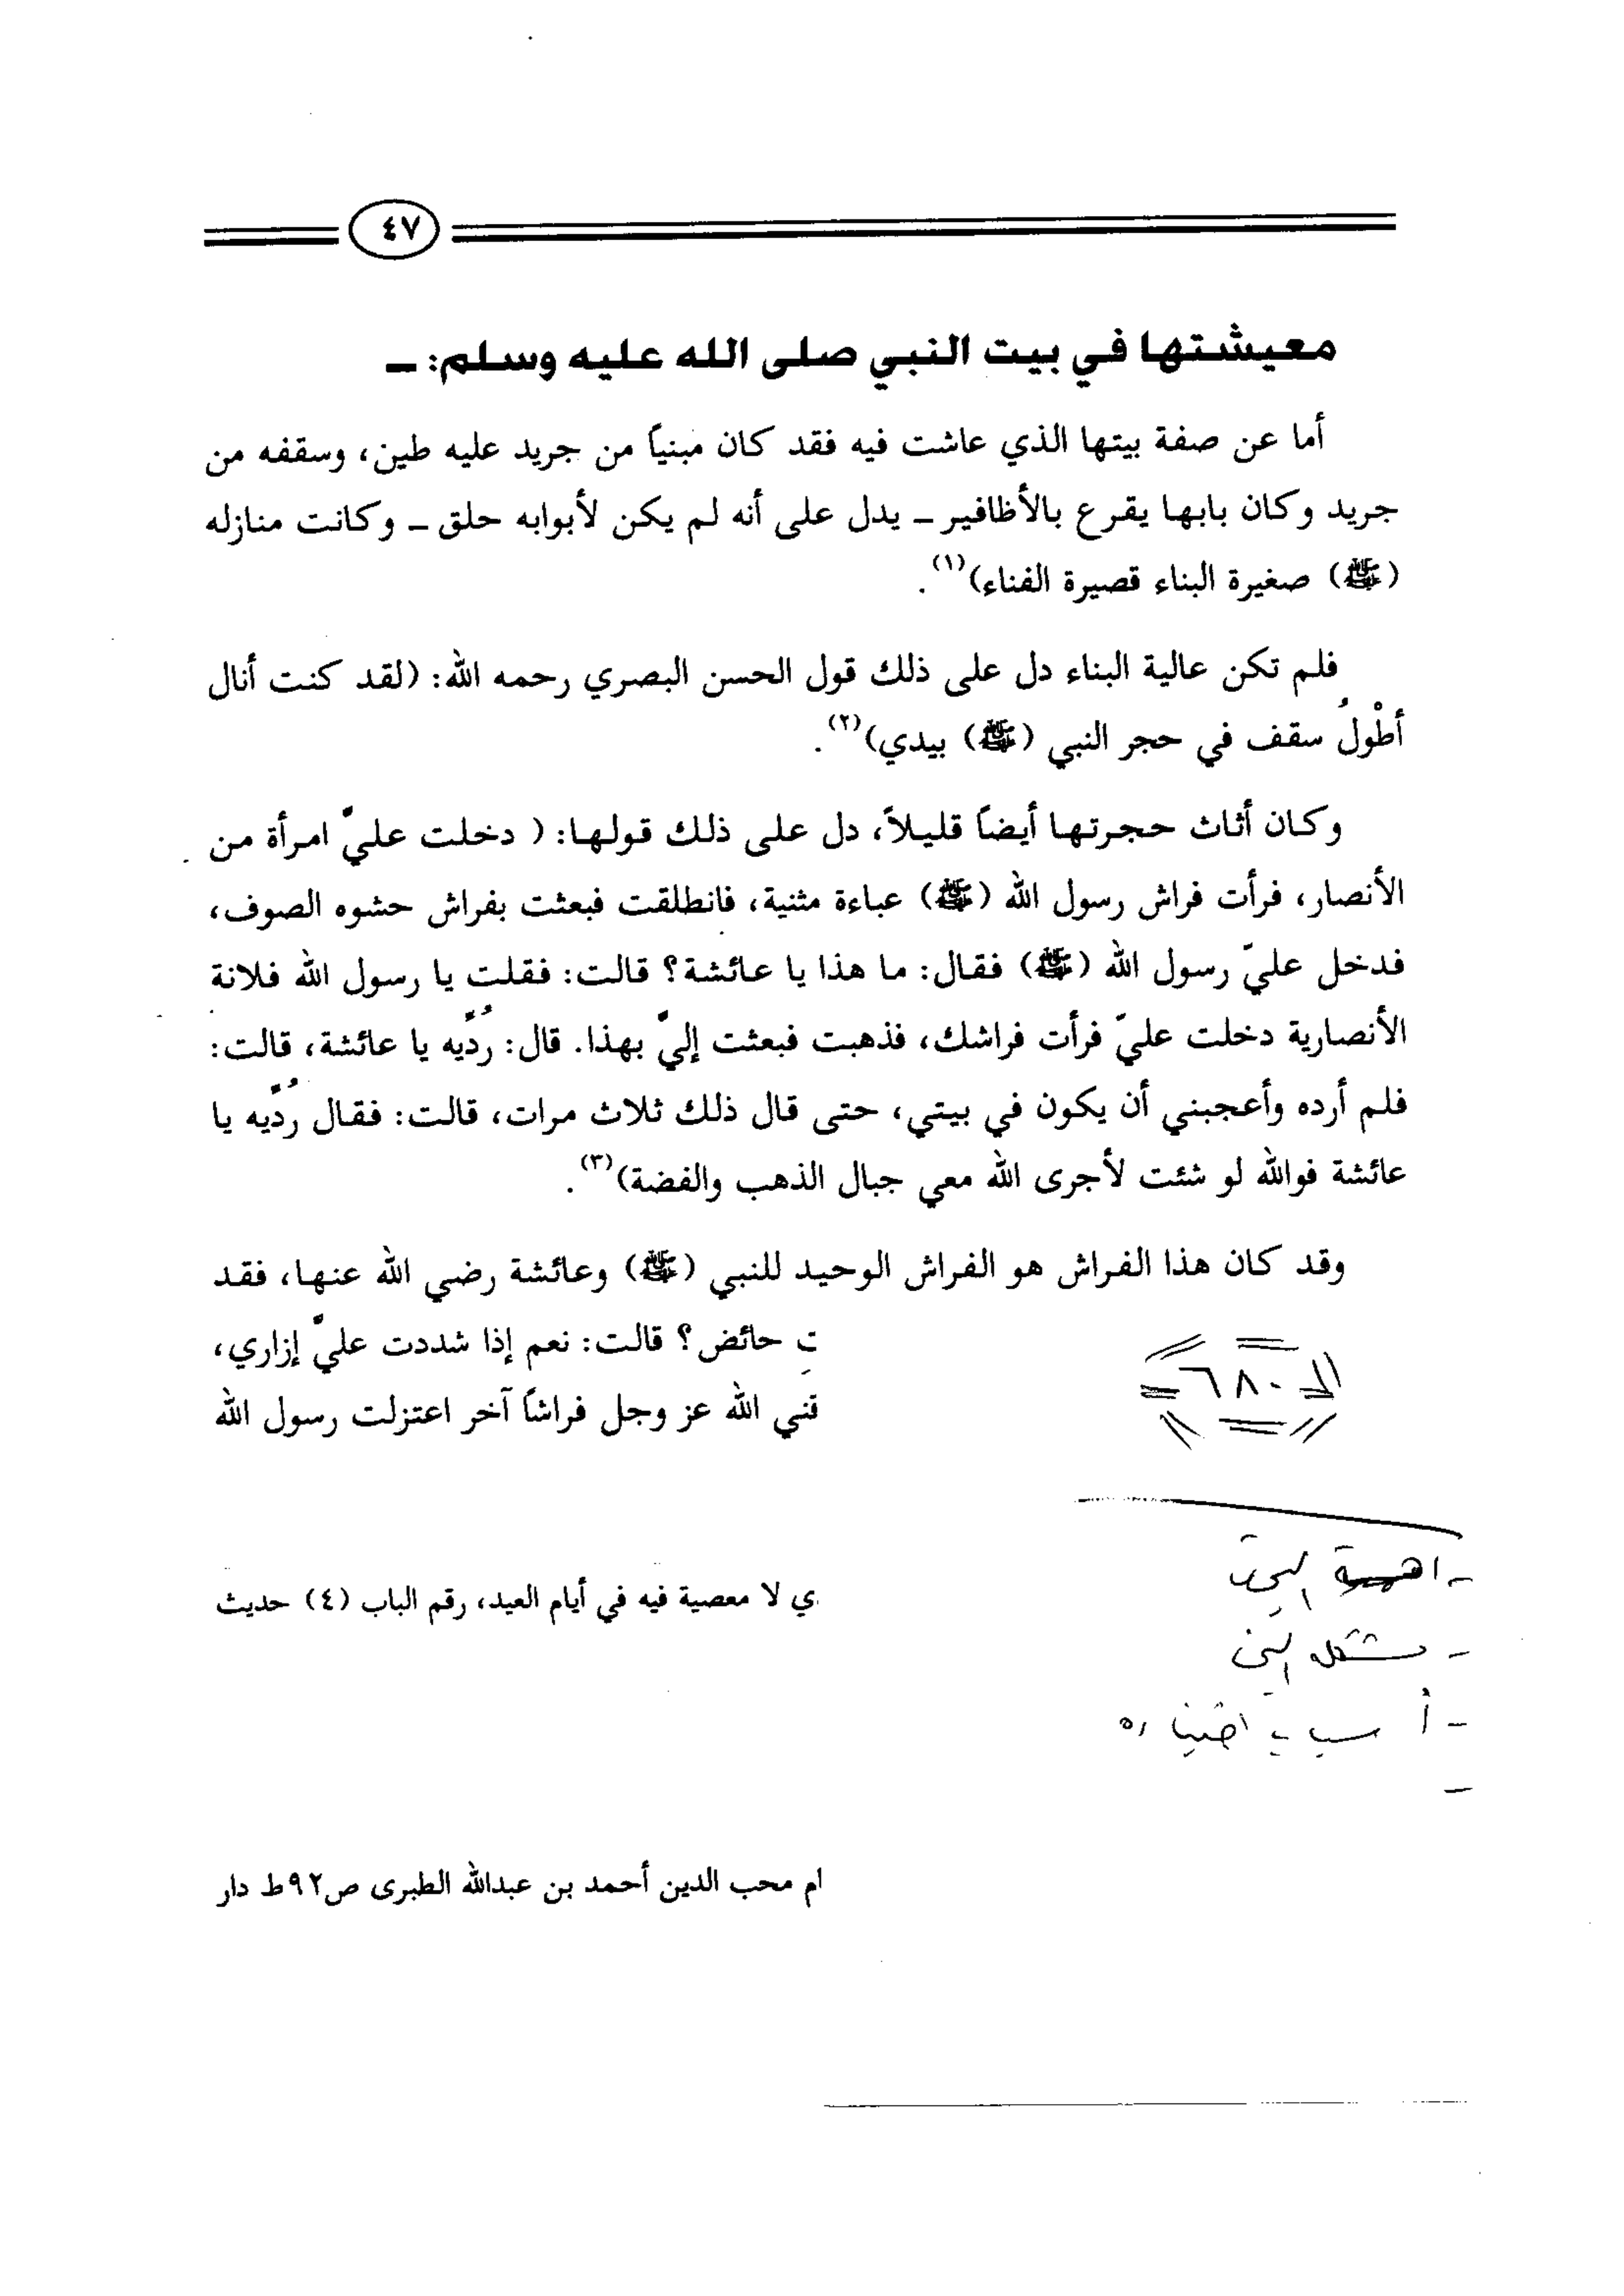 ٤٧
معيشتها في بيت النبي صلى الله عليه وسلم: ـ
أما عن صفة بيتها الذي عاشت فيه فقد كان مبنياً من جريد عليه طين، وسقفه من
جريد وكان بابها يقرع بالأظافير ـ يدل على أنه لم يكن لأبوابه حلق ـ وكانت منازله
(ﷺ) صغيرة البناء قصيرة الفناء)(١).
فلم تكن عالية البناء دل على ذلك قول الحسن البصري رحمه الله: (لقد كنت أنال
أطْولُ سقف في حجر النبي (ﷺ) بيدي)(٢).
وكان أثاث حجرتها أيضاً قليلاً، دل على ذلك قولها: ( دخلت عليّ امرأة من
الأنصار، فرأت فراش رسول الله (ﷺ) عباءة مثنية، فانطلقت فبعثت بفراش حشوه الصوف،
فدخل عليّ رسول الله (ﷺ) فقال: ما هذا يا عائشة؟ قالت: فقلت يا رسول الله فلانة
الأنصارية دخلت عليّ فرأت فراشك، فذهبت فبعثت إليّ بهذا. قال: رُدِّيه يا عائشة، قالت:
فلم أرده وأعجبني أن يكون في بيتي، حتى قال ذلك ثلاث مرات، قالت: فقال رُدِّيه يا
عائشة فوالله لو شئت لأجرى الله معي جبال الذهب والفضة)(٣).
وقد كان هذا الفراش هو الفراش الوحيد للنبي (ﷺ) وعائشة رضي الله عنها، فقد
ت حائض؟ قالت: نعم إذا شددت عليّ إزاري،
قني الله عز وجل فراشاً آخر اعتزلت رسول الله
٦٨٠
ي لا معصية فيه في أيام العيد، رقم الباب (٤) حديث
ـ اهمية البحث
ـ مشكلة البحث
ـ أسباب اختياره
ـ
ام محب الدين أحمد بن عبدالله الطبرى ص٩٢ط دار